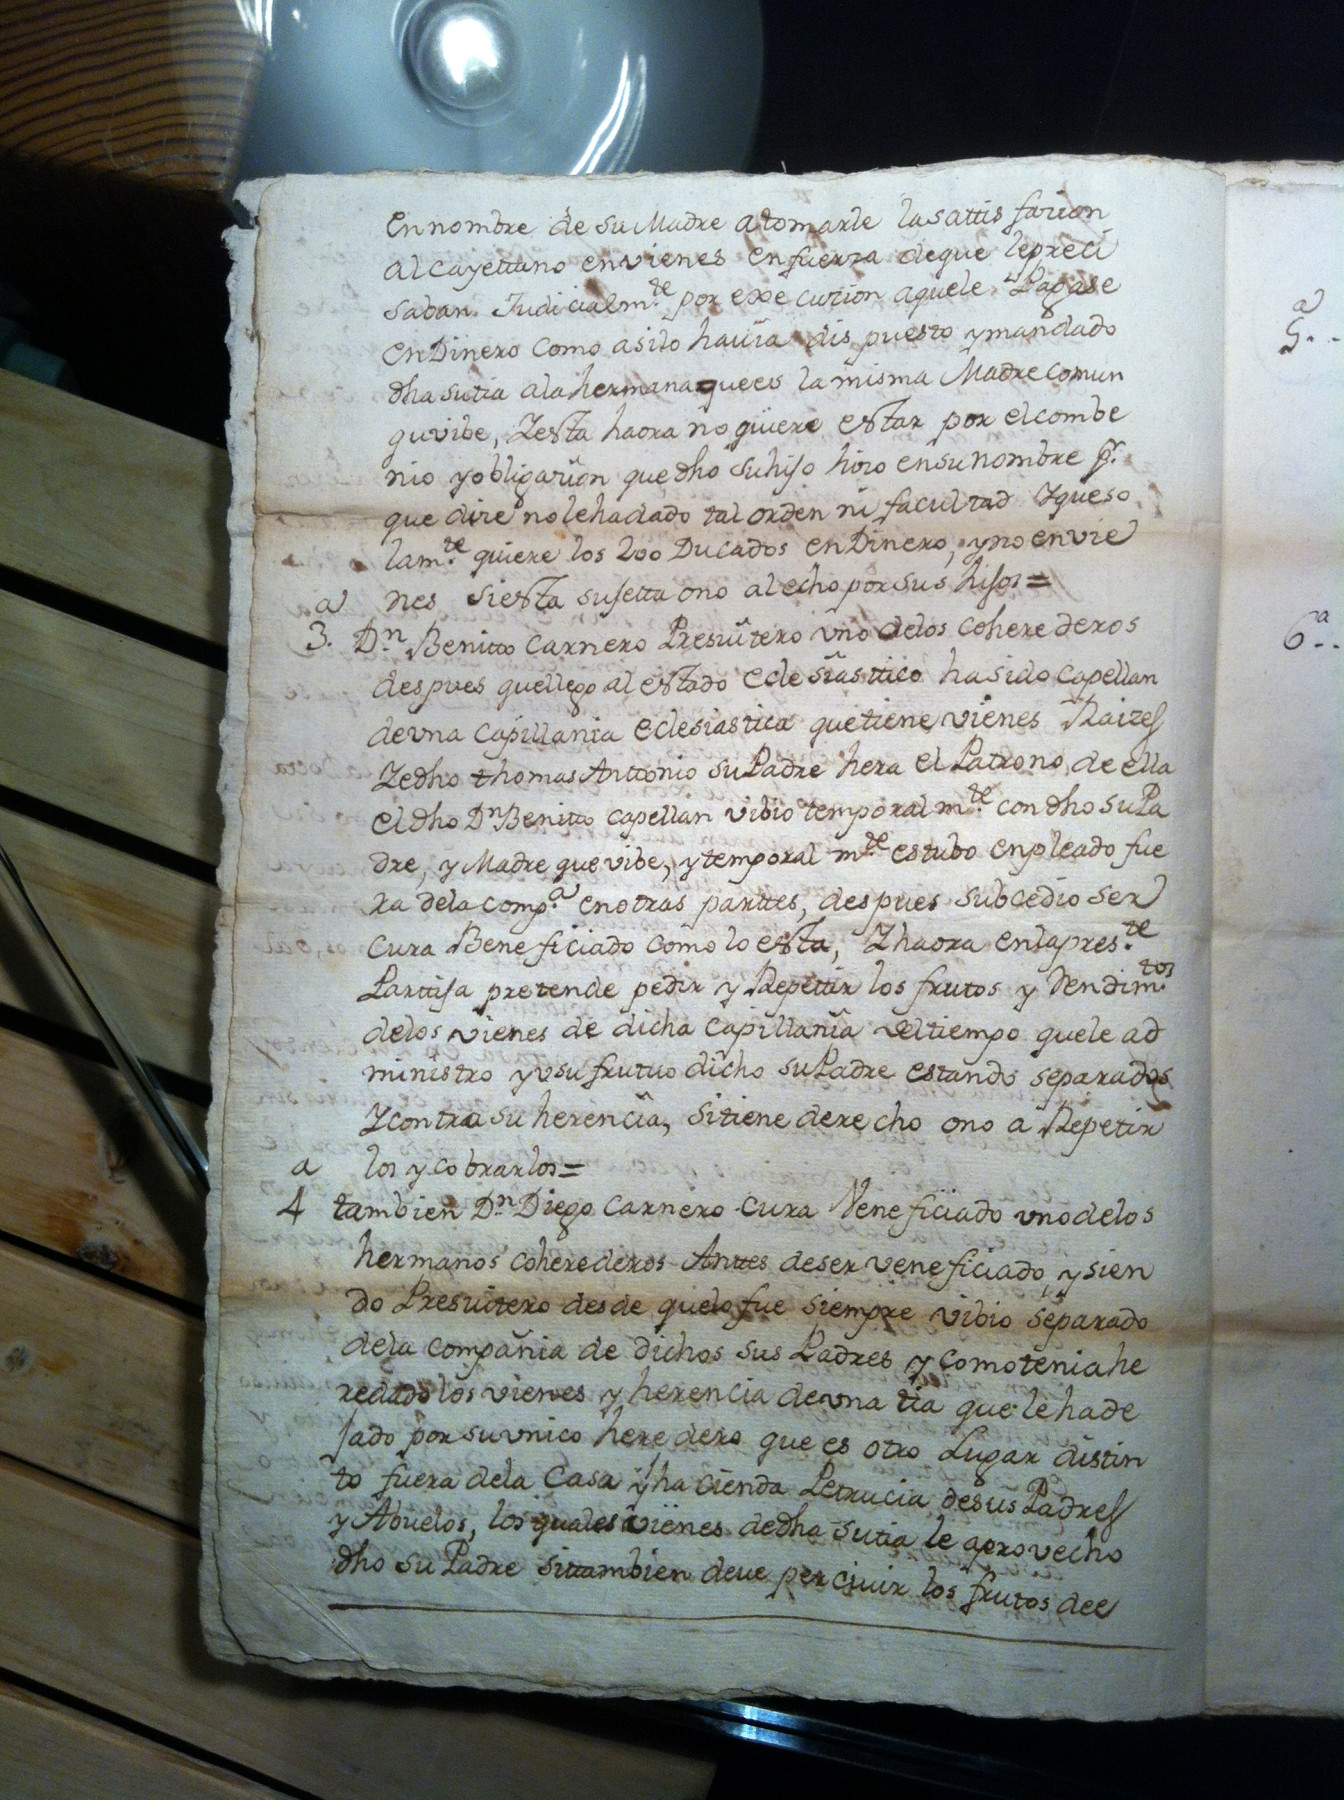 en nombre de su Madre a tomarle la sattisfacion
al Cayettano en vienes en fuerza de que le preci
saban Judicialm.te por execucion a que le Pagase
en Dinero como asi lo havia dispuesto y mandado
dha su tia a la hermana que es la misma Madre comun
qu vibe, Y esta haora no quiere estar por el combe
nio y obligacion que dho su hijo hizo en su nombre p.r
que dice no le ha dado tal orden ni facultad Y que so
lam.te quiere los 200 Ducados en Dinero, y no en vie
nes si esta sujetta o no al echo por sus hijos =
3.a D.n Benitto Carnero Presvitero vno de los coherederos
despues que llego al estado eclesiasttico ha sido Capellan
de vna Capillania eclesiastica que tiene vienes Raizes
Y e dho thomas Anttonio su Padre hera el Patrono de ella
el dho D.n Benitto Capellan vibio temporalm.te con dho su Pa
dre, y Madre que vibe, y temporalm.te estubo enpleado fue
ra de la comp.a en otras parttes, despues subcedio ser
Cura Beneficiado como lo esta, Y haora en la pres.te
Parttija pretende pedir y Repettir los frutos y Rendim.tos
de los vienes de dicha Capillania el tiempo que le ad
ministro y vsufrutuo dicho su Padre estando separados
Y contra su herencia, si tiene derecho o no a Repetir
los y cobrarlos =
4a tambien D.n Diego Carnero Cura Veneficiado vno de los
hermanos coherederos Anttes de ser veneficiado, y sien
do Presvitero desde que lo fue siempre vibio separado
de la compañia de dichos sus Padres y como tenia he
redado los vienes y herencia de vna tia que le ha de
jado por su vnico heredero que es otro Lugar distin
to fuera de la Casa y hacienda Petrucia de sus Padres
y Abuelos, los quales vienes de dha su tia le aprovecho
dho su Padre si ttambien deve percivir los frutos de e
5.a
6.a